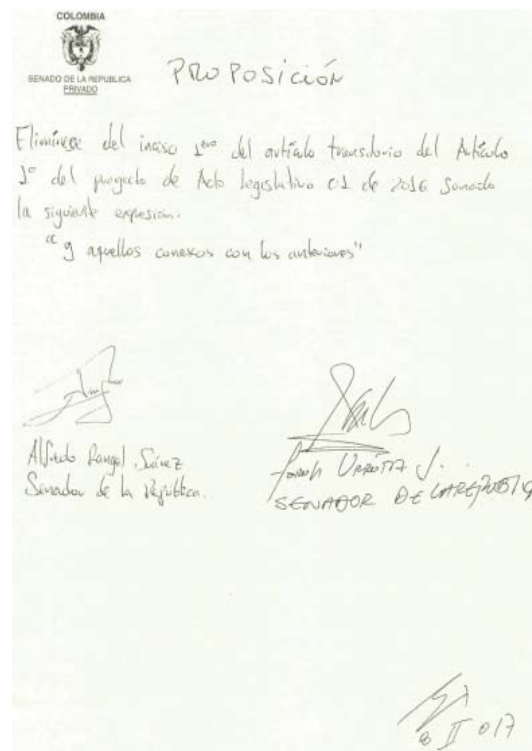 COLOMBIA
SENADO DE LA REPUBLICA
PRIVADO
PROPOSICIÓN
Elimínese del inciso 1ero del artículo transitorio del Artículo
1° del proyecto de Acto legislativo 01 de 2016 Senado
la siguiente expresión.
"y aquellos conexos con los anteriores"
Alfredo Rangel Suárez
Senador de la República.
URRUTIA J.
SENADOR DE LA REPÚBLICA
8 II 017